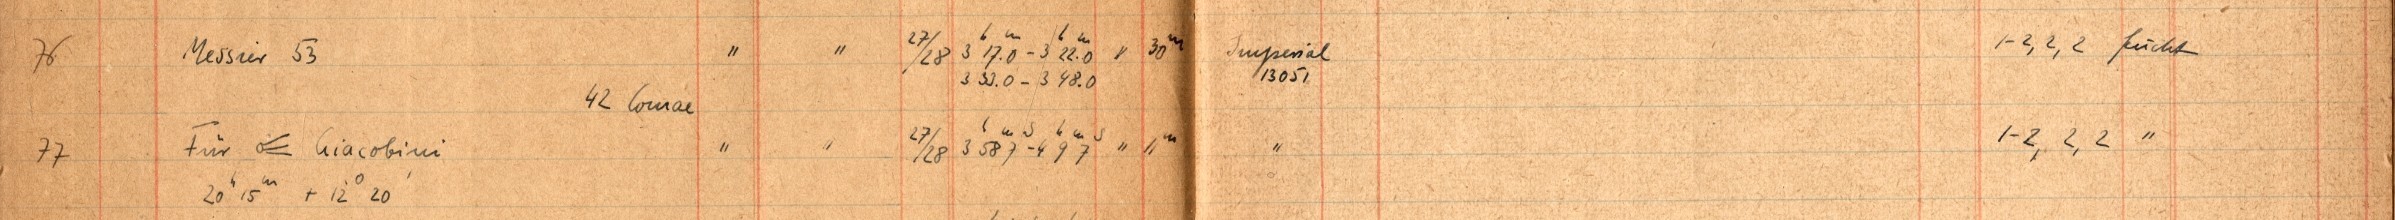 76 Messier 53 " " 27/28 3h 17.0m - 3h 22.0m " 30m Imperial 1-2, 2, 2 feucht
3 33.0 - 3 48.0 13051
42 Comae
77 Für ☄ Giacobini " " 27/28 3h 58m 7s - 4h 9m 7s " 11m " 1-2, 2, 2 "
20h 15m + 12° 20'